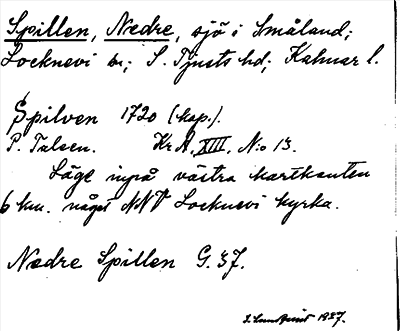 Spillen, Nedre, sjö i Småland;
Locknevi sn; S. Tjusts hd; Kalmar l.
Spilven 1720 (kop.).
P. Talsen. Kr A, XIII, No 13.
Läge invid västra kartkanten
6 km. något NNV Locknevi kyrka.
Nedre Spillen G. 37.
1927.